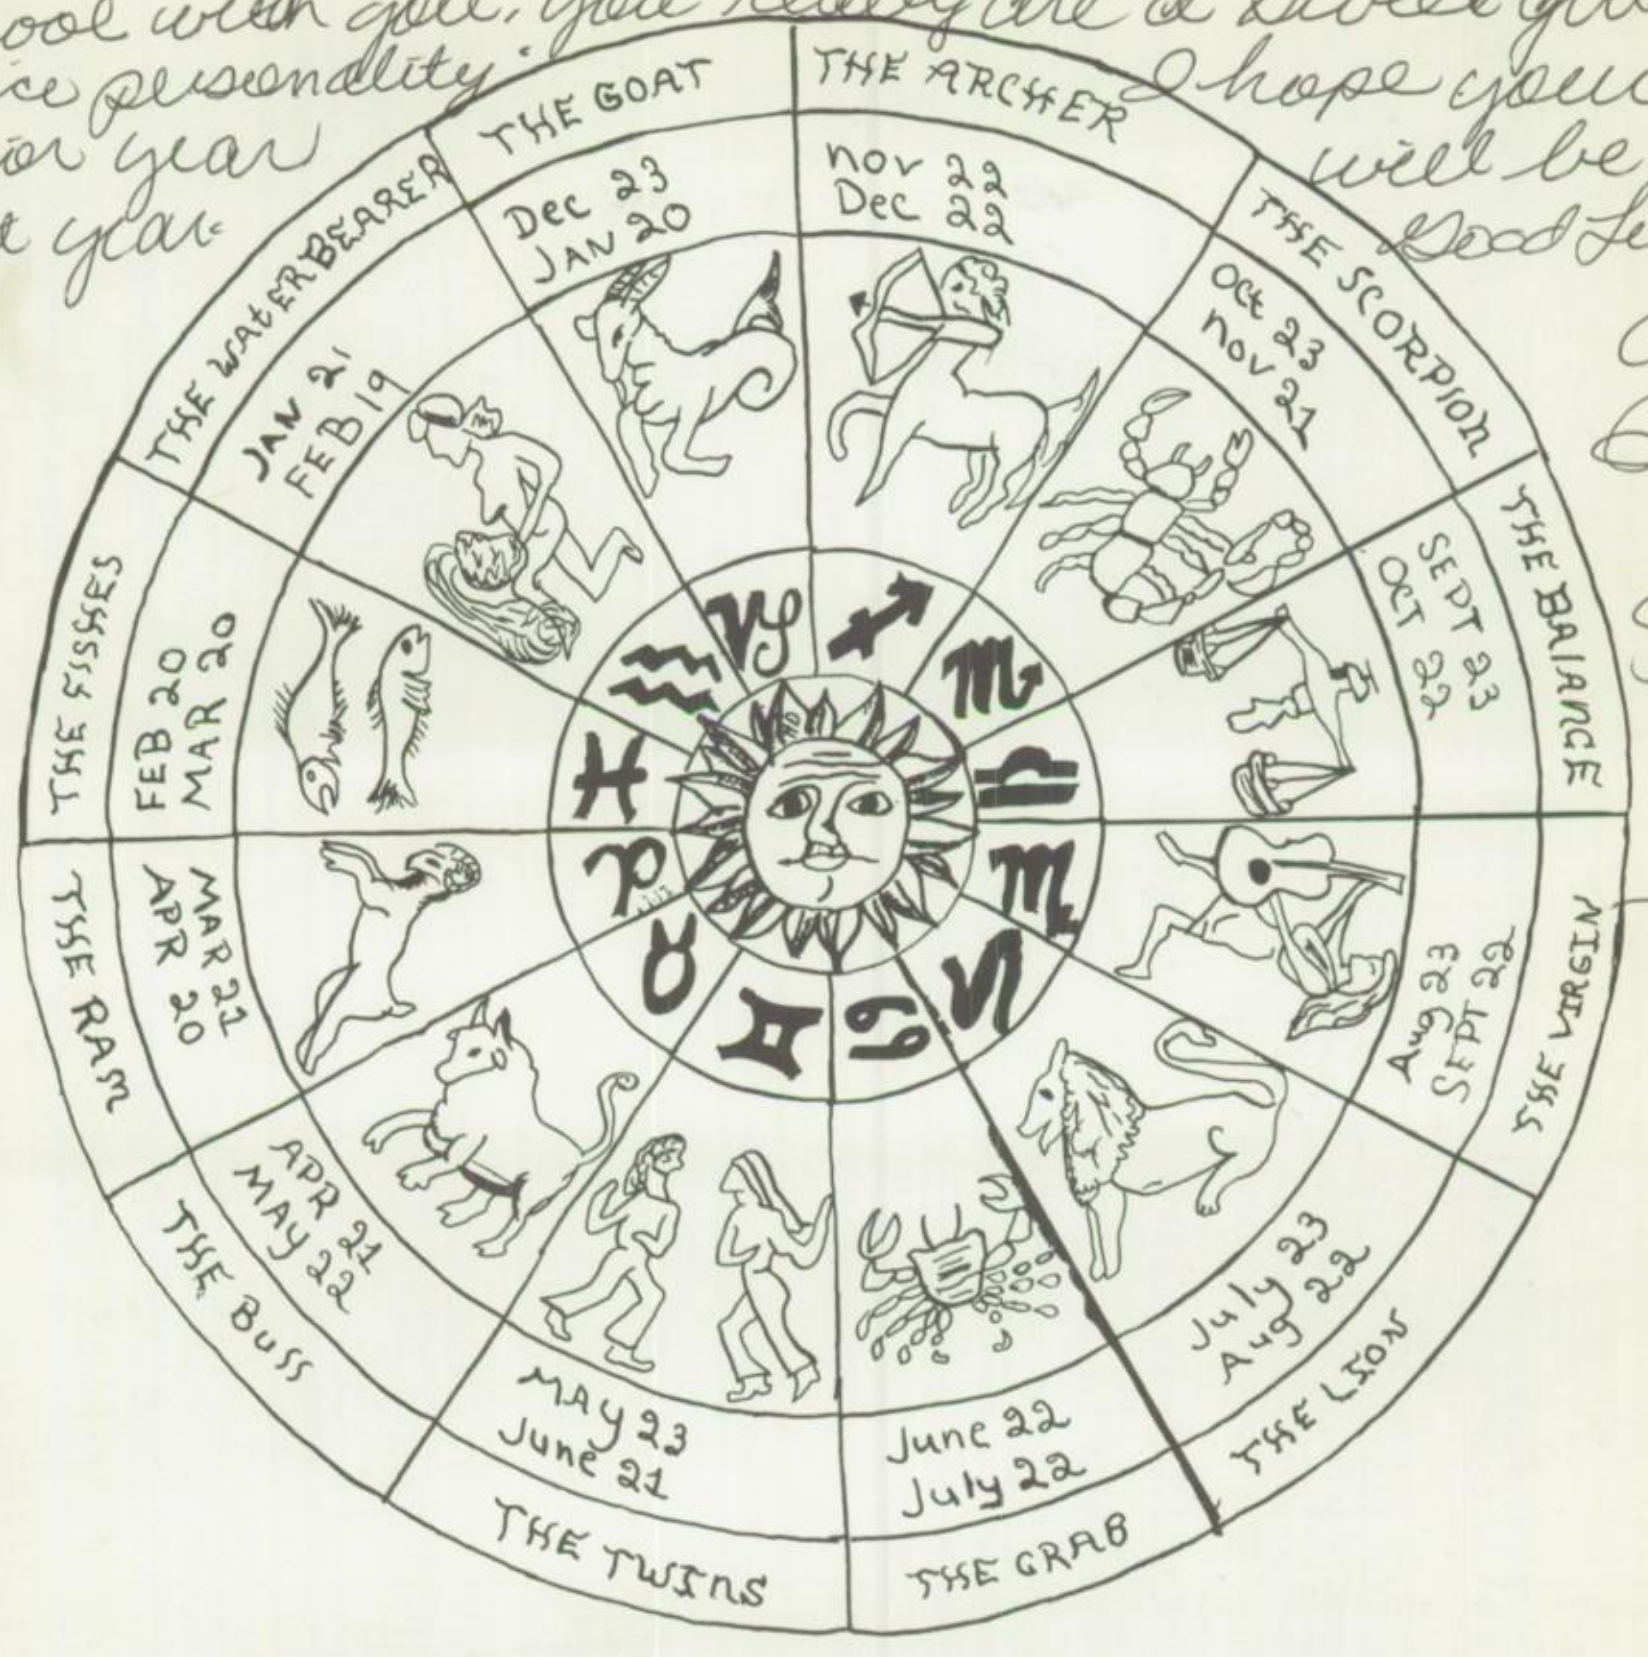 ool with you. you really are a sweet
ce personality.
ior year
t year.
I hope your
will be
Good
THE GOAT
Dec 23
JAN 20
THE ARCHER
nov 22
Dec 22
THE SCORPION
Oct 23
nov 21
THE BALANCE
SEPT 23
OCT 22
THE VIRGIN
Aug 23
SEPT 22
THE LION
July 23
Aug 22
THE CRAB
June 22
July 22
THE TWINS
MAY 23
June 21
THE BULL
APR 21
MAY 22
THE RAM
MAR 21
APR 20
THE FISHES
FEB 20
MAR 20
THE WATERBEARER
JAN 21
FEB 19